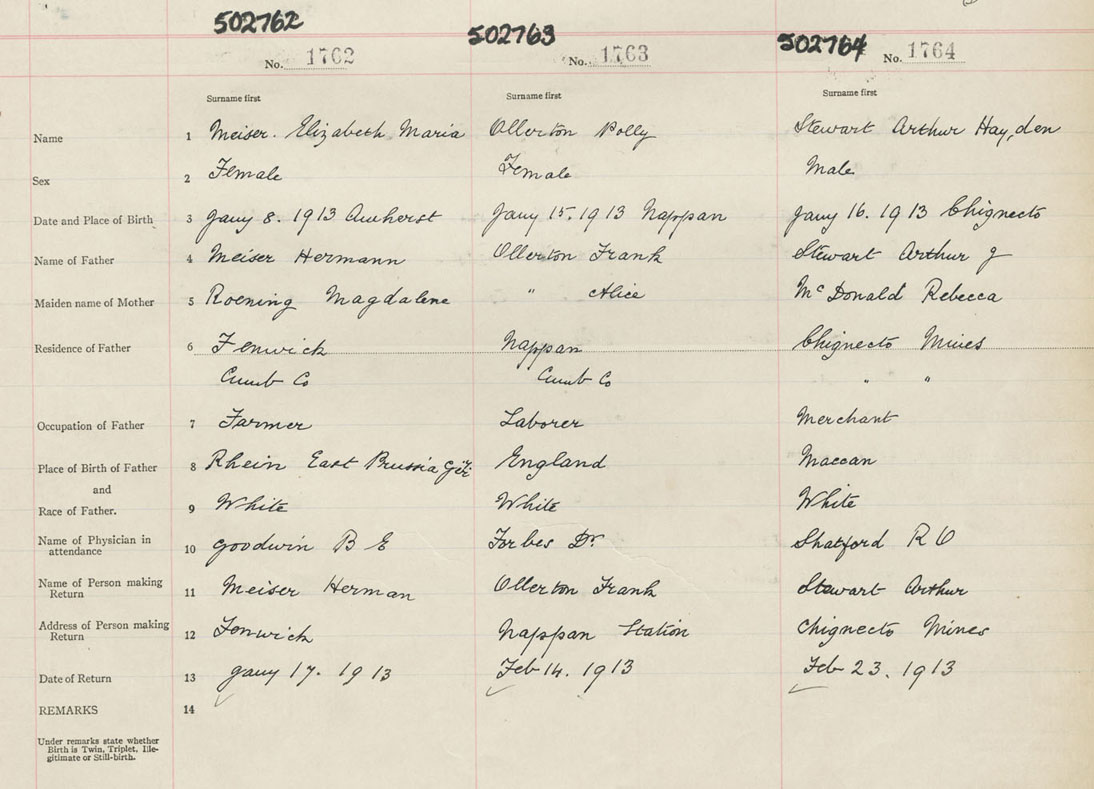 502762 502763 502764
No. 1762 No. 1763 No. 1764
Surname first Surname first Surname first
Name 1 Meiser. Elizabeth Maria Ollerton Polly Stewart Arthur Hayden
Sex 2 Female Female Male.
Date and Place of Birth 3 Jany 8. 1913 Amherst Jany 15. 1913 Nappan Jany 16. 1913 Chignecto
Name of Father 4 Meiser Hermann Ollerton Frank Stewart Arthur J
Maiden name of Mother 5 Roening Magdalene " Alice McDonald Rebecca
Residence of Father 6 Fenwick Nappan Chignecto Mines
Cumb Co Cumb Co " "
Occupation of Father 7 Farmer Laborer Merchant
Place of Birth of Father 8 Rhein East Prussia Ger England Maccan
and
Race of Father. 9 White White White
Name of Physician in
attendance 10 Goodwin B E Forbes Dr. Shatford R O
Name of Person making
Return 11 Meiser Herman Ollerton Frank Stewart Arthur
Address of Person making
Return 12 Fenwick Nappan Station Chignecto Mines
Date of Return 13 Jany 17. 1913 Feb 14. 1913 Feb 23. 1913
REMARKS 14
Under remarks state whether
Birth is Twin, Triplet, Ille-
gitimate or Still-birth.